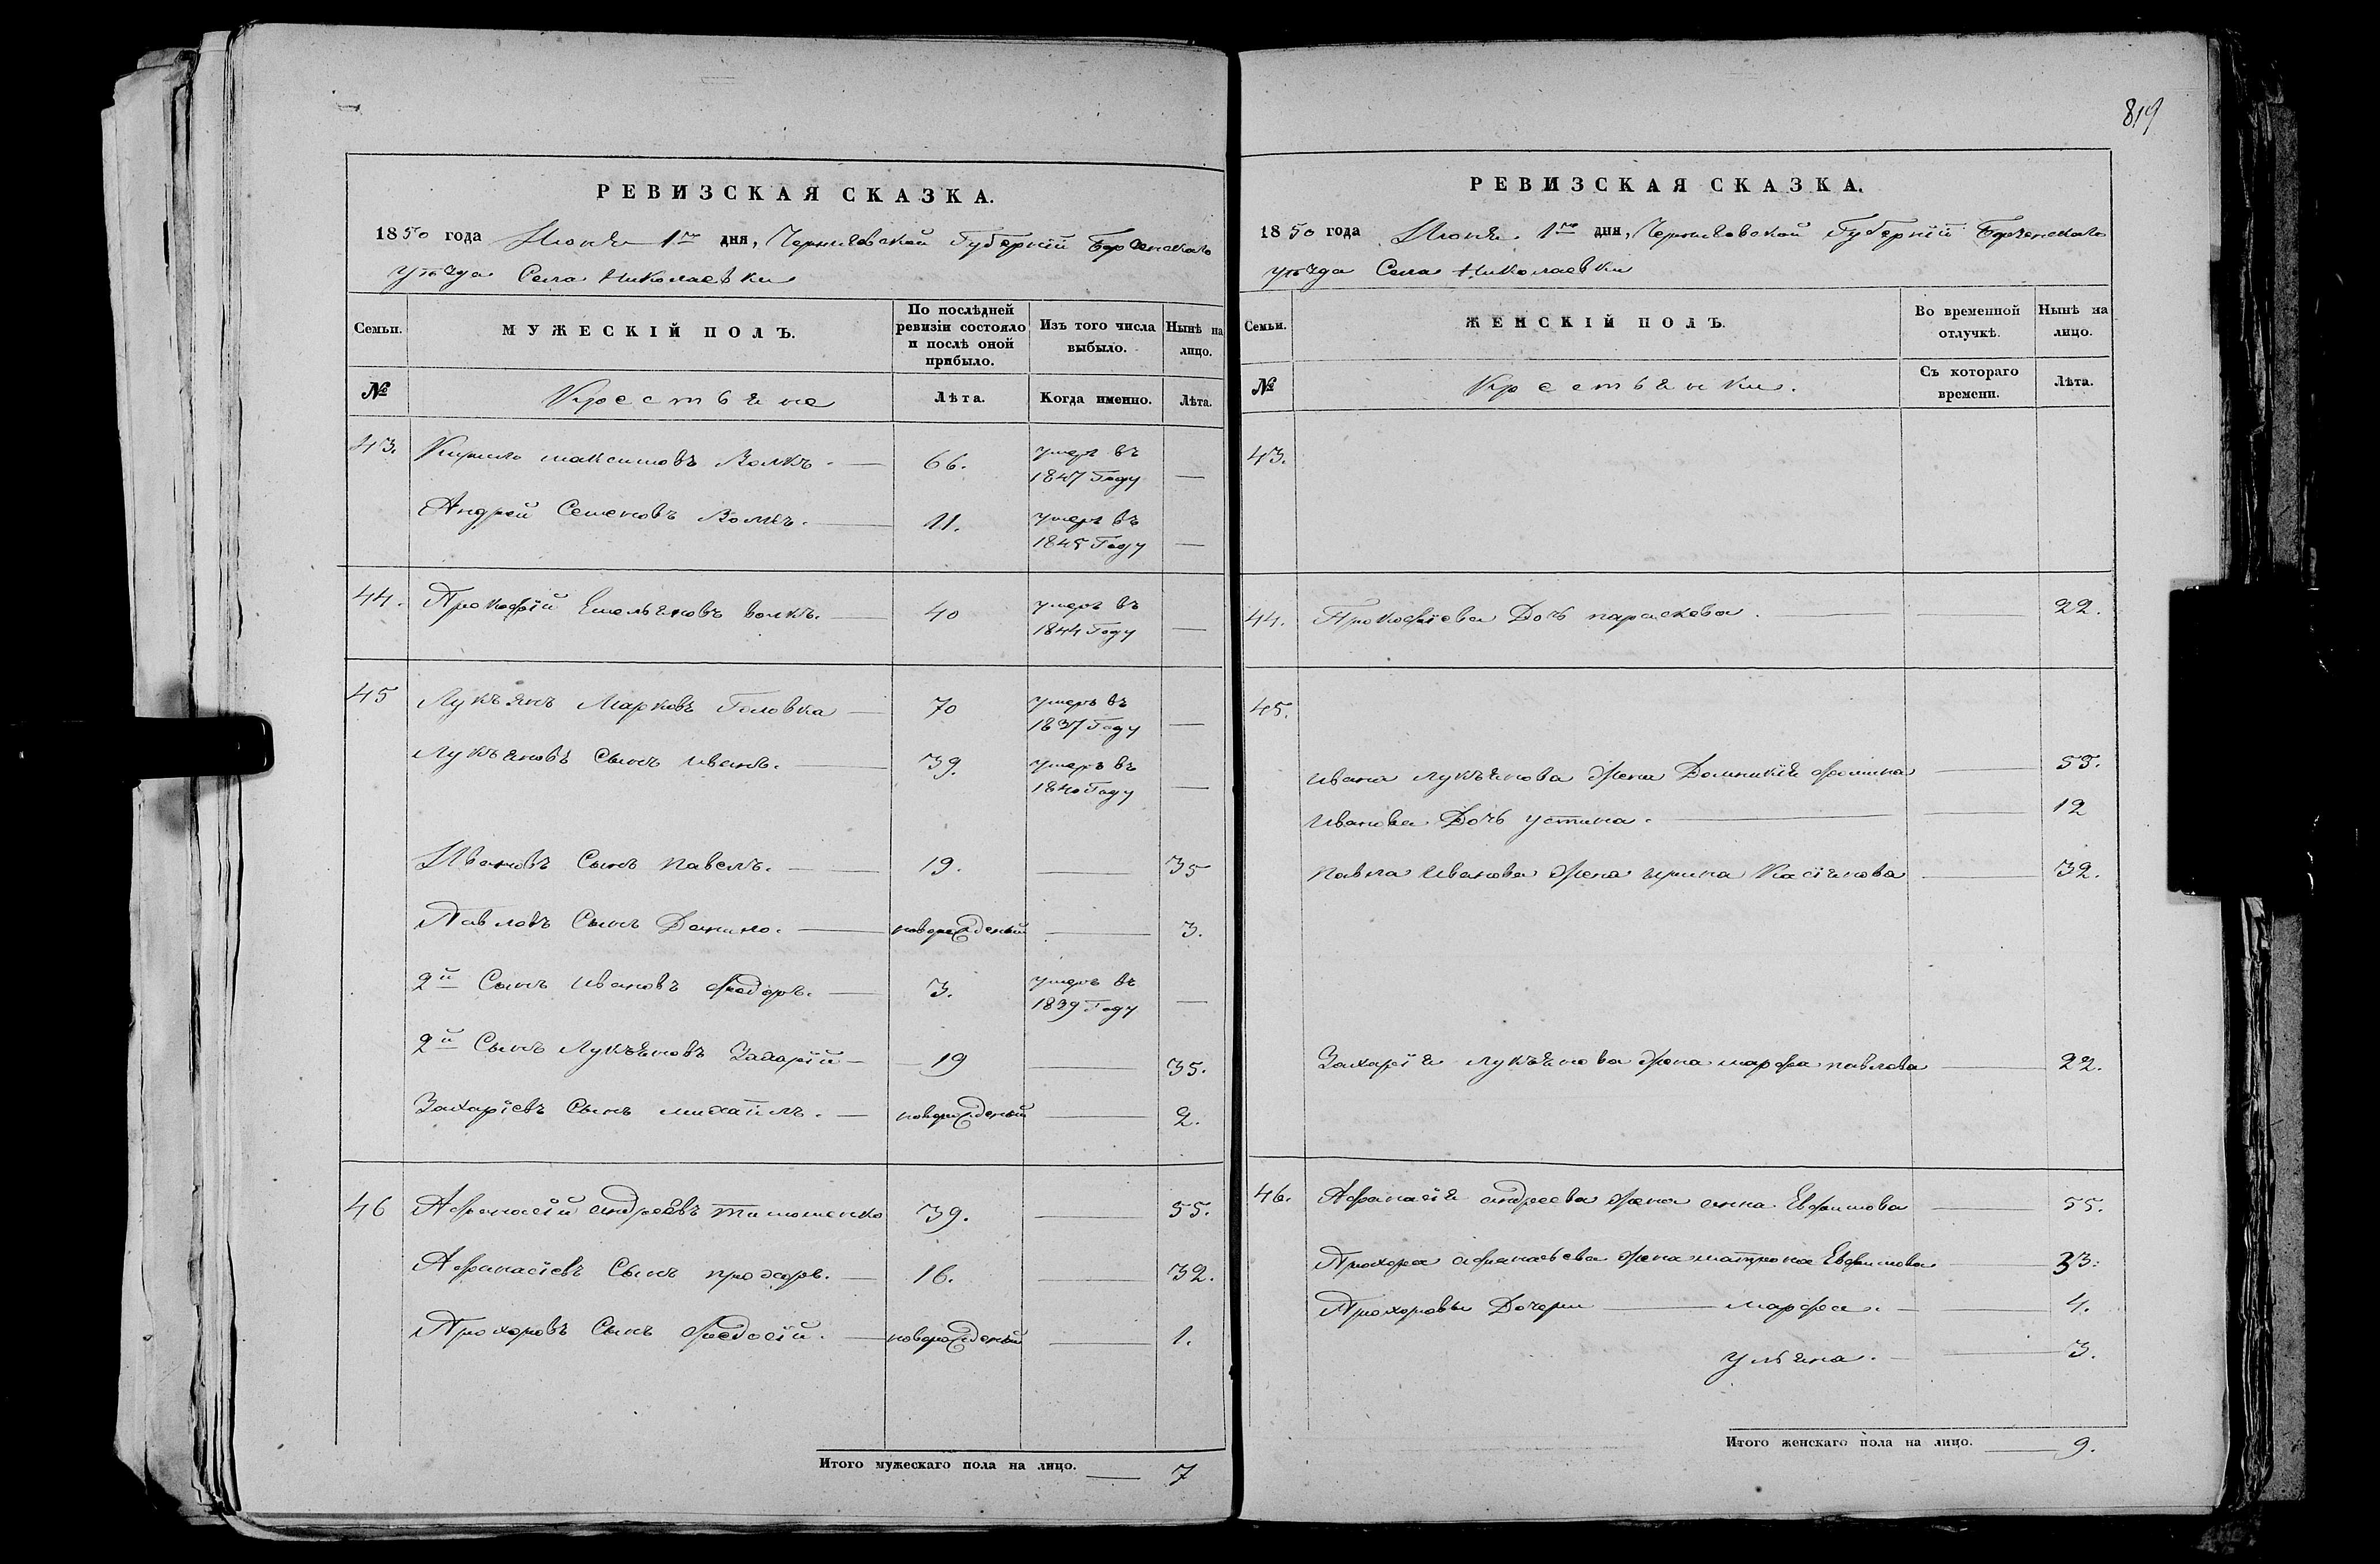 819
РЕВИЗСКАЯ СКАЗКА.
1850 года Июня 1го дня, Черниговской Губерніи Борзенскаго
уѣзда Села Николаевки
Семьи.
МУЖЕСКІЙ ПОЛЪ.
По послѣдней ревизіи состояло и послѣ оной прибыло.
Изъ того числа выбыло.
Нынѣ на лицо.
№
Крестьяне
Лѣта.
Когда именно.
Лѣта.
43. Кирило Максимовъ Волкъ. — 66. умеръ въ 1847 Году —
Андрей Семеновъ Волкъ. — 11. умеръ въ 1845 Году —
44. Прокофій Емельяновъ Волкъ. — 40 умеръ въ 1844 Году —
45 Лукъянъ Марковъ Головка — 70 умеръ въ 1837 Году —
Лукъяновъ Сынъ Иванъ. — 39. умеръ въ 1840 Году —
Ивановъ Сынъ Павелъ. — 19. — 35
Павловъ Сынъ Данило. — новорожденый — 3.
2й Сынъ Ивановъ Федоръ. — 3. умеръ въ 1839 Году —
2й Сынъ Лукъяновъ Захарій — 19 — 35.
Захаріевъ Сынъ михаилъ. — новорожденый — 2.
46 Афанасій андреевъ тимошенко 39. — 55.
Афанасіевъ Сынъ прохоръ. — 16. — 32.
Прохоровъ Сынъ Федосій. — новорожденый — 1.
Итого мужескаго пола на лицо. — 7
РЕВИЗСКАЯ СКАЗКА.
1850 года Июня 1го дня, Черниговской Губерніи Борзенскаго
уѣзда Села Николаевки
Семьи.
ЖЕНСКІЙ ПОЛЪ.
Во временной отлучкѣ.
Нынѣ на лицо.
№
Крестьянки.
Съ котораго времени.
Лѣта.
43.
44. Прокофіева Дочь параскева. — — 22.
45.
Ивана лукъянова жена Домникія фомина — 53.
Иванова Дочь устина. — — 12
Павла Иванова жена ирина Касіянова — 32.
Захарія лукъянова жена марфа павлова — 22.
46. Афанасія андреева жена анна Евфимова — 55.
Прохора афанасьева жена матрона Евфимова — 33.
Прохоровы Дочери — марфа. — 4.
ульяна. — — 3.
Итого женскаго пола на лицо. — 9.